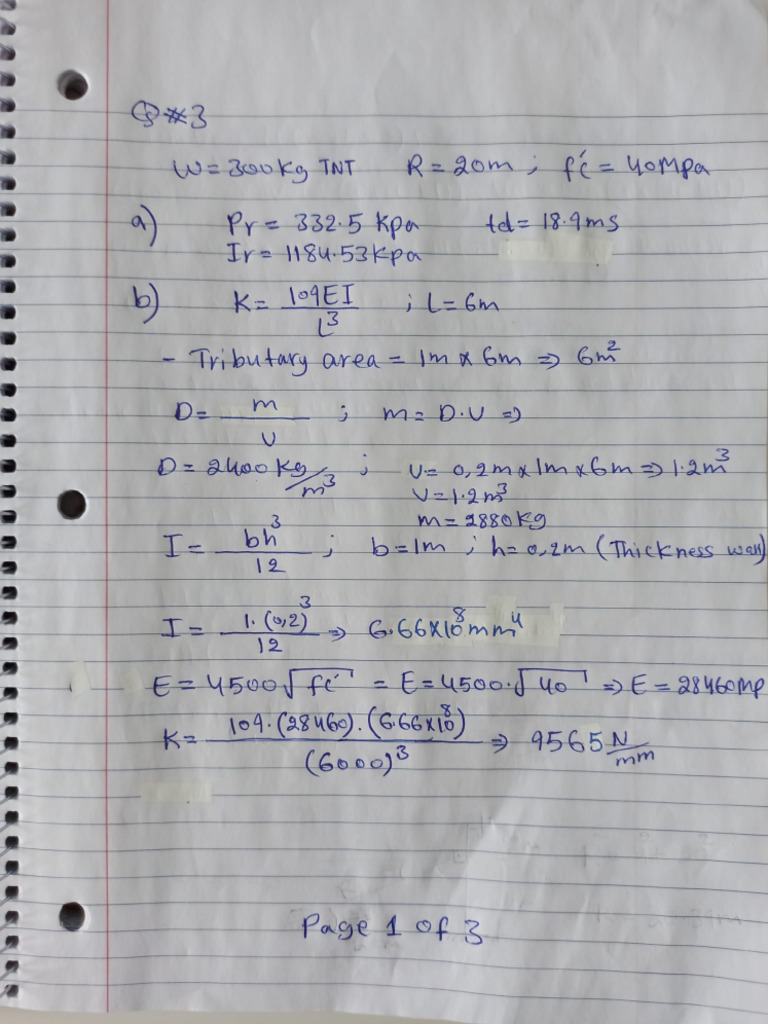 Q#3
W = 300kg TNT R = 20m ; f'c = 40Mpa
a) Pr = 332.5 kpa td = 18.9ms
Ir = 1184.53kpa
b) K = 109EI / L³ ; L = 6m
- Tributary area = 1m x 6m => 6m²
D = m / v ; m = D.V =>
D = 2400 kg/m³ ; V = 0,2m x 1m x 6m => 1.2m³
V = 1.2m³
m = 2880kg
I = bh³ / 12 ; b = 1m ; h = 0,2m (Thickness wall)
I = 1.(0,2)³ / 12 => 6.66x10⁸mm⁴
E = 4500√f'c = E = 4500.√40 => E = 28460Mp
K = 109.(28460).(6.66x10⁸) / (6000)³ => 9565 N/mm
Page 1 of 3